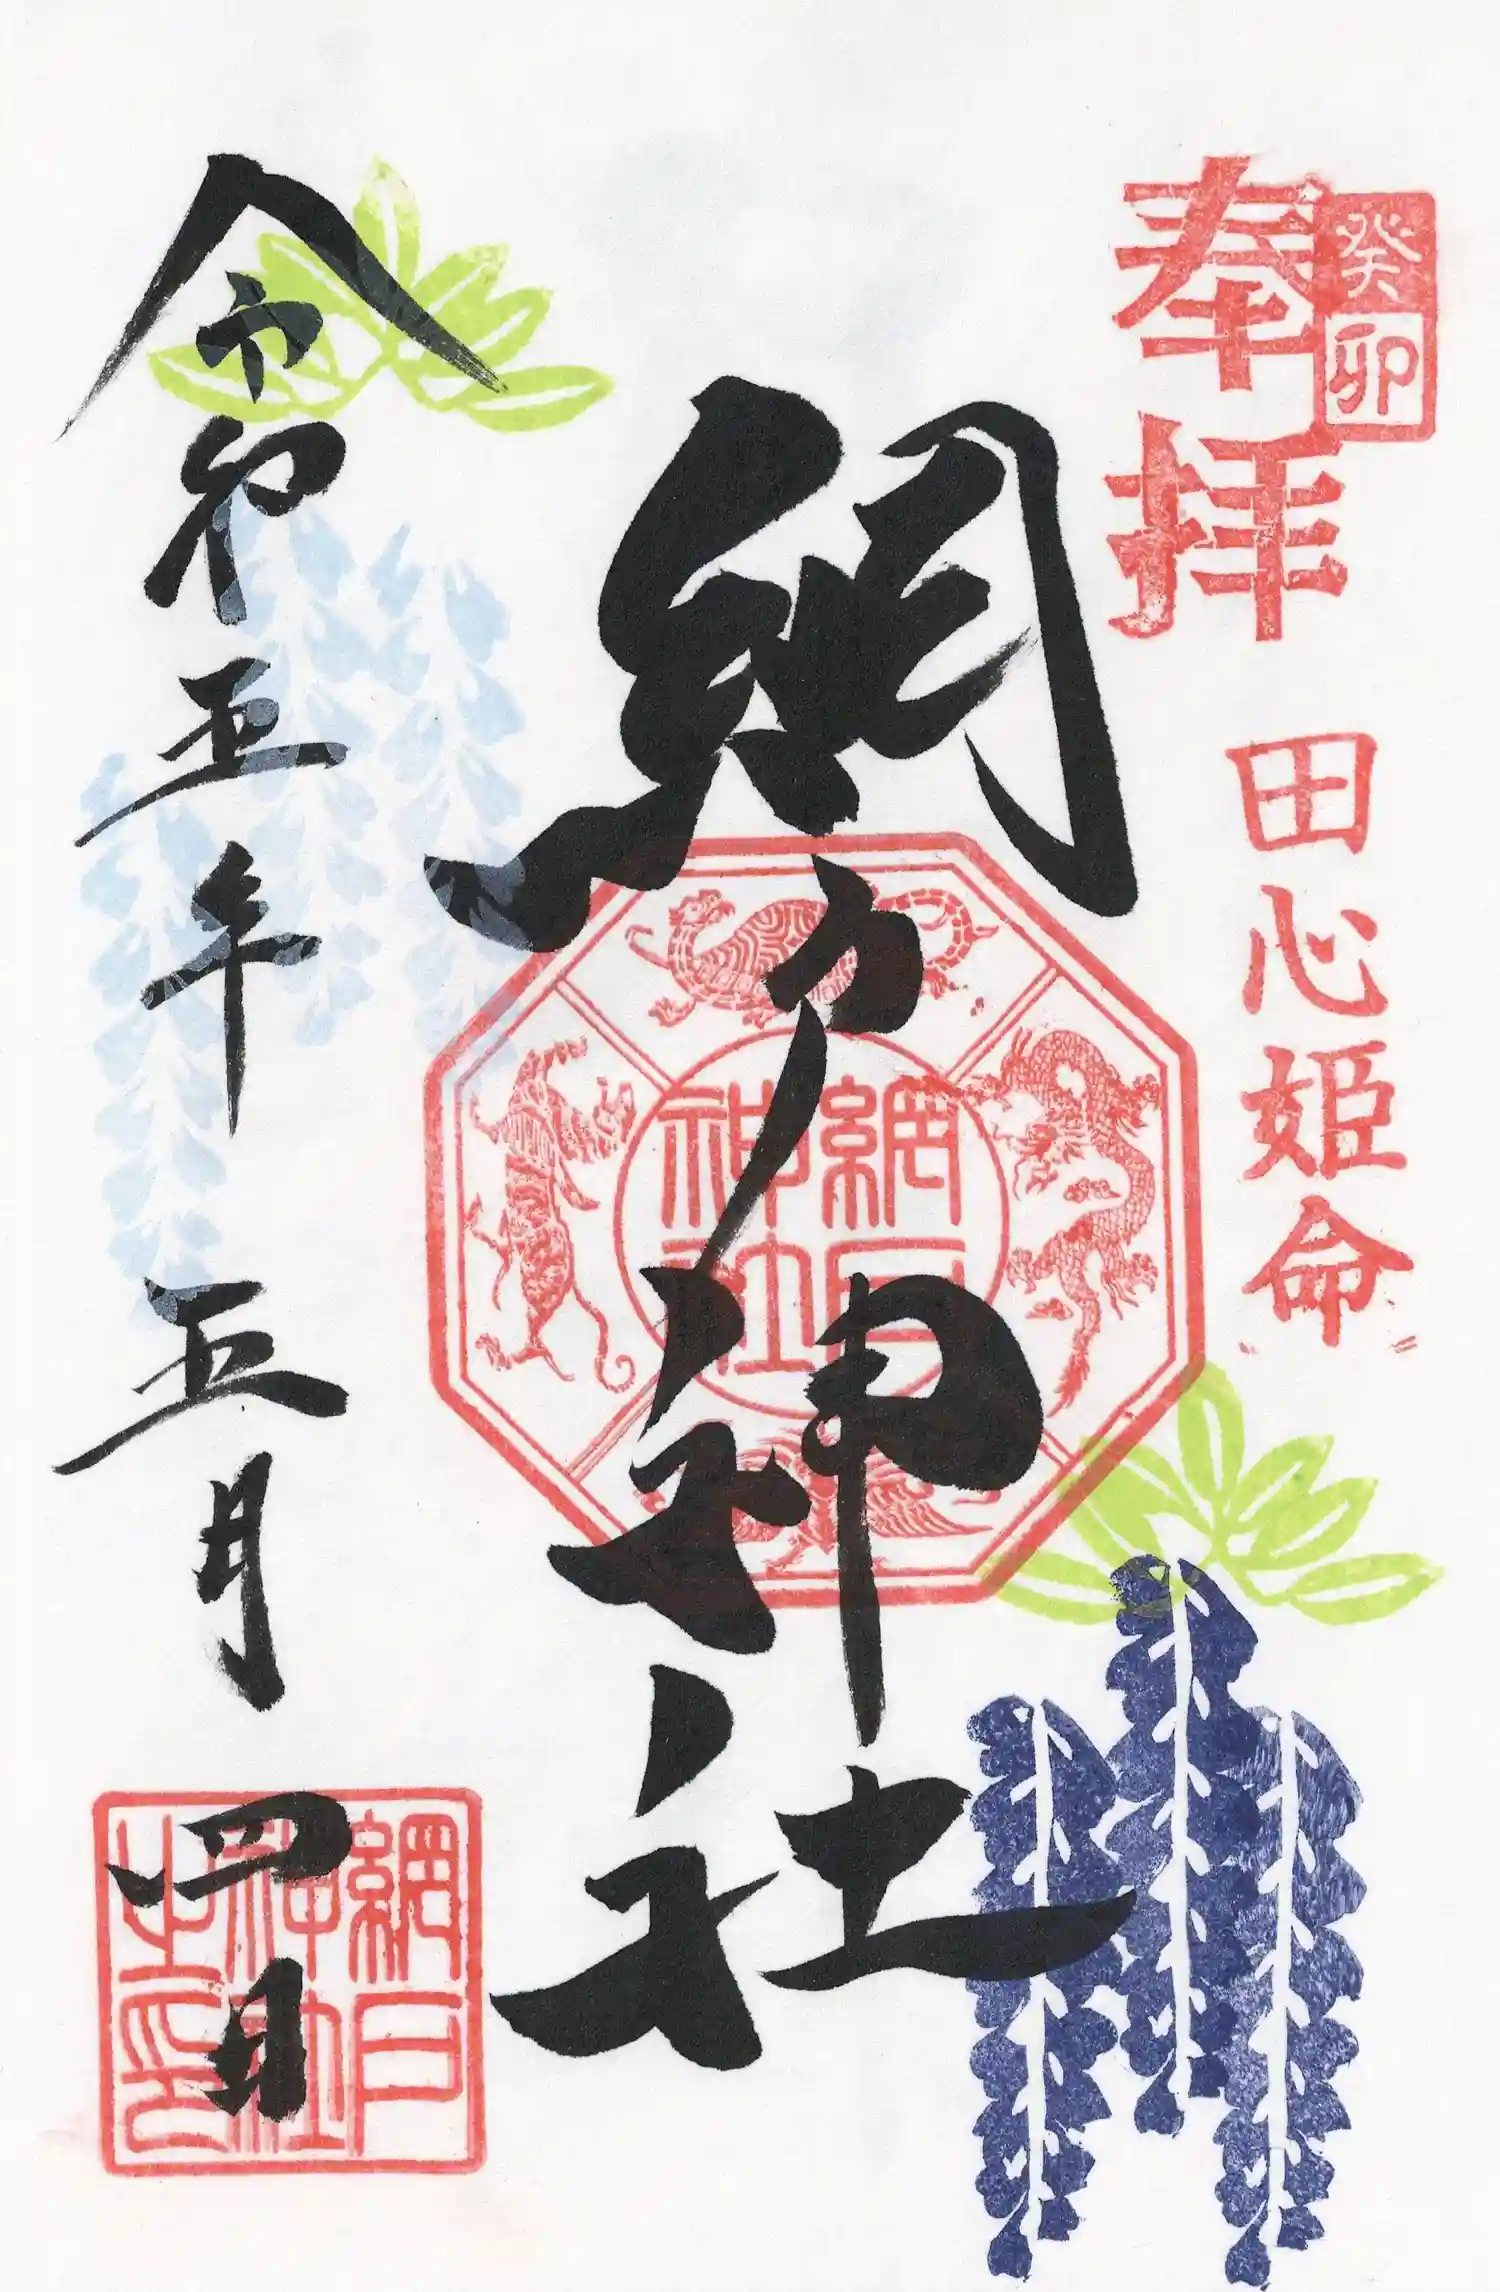 奉拝
癸卯
田心姫命
網戸神社
網戸神社
令和五年五月四日
網戸神社之印